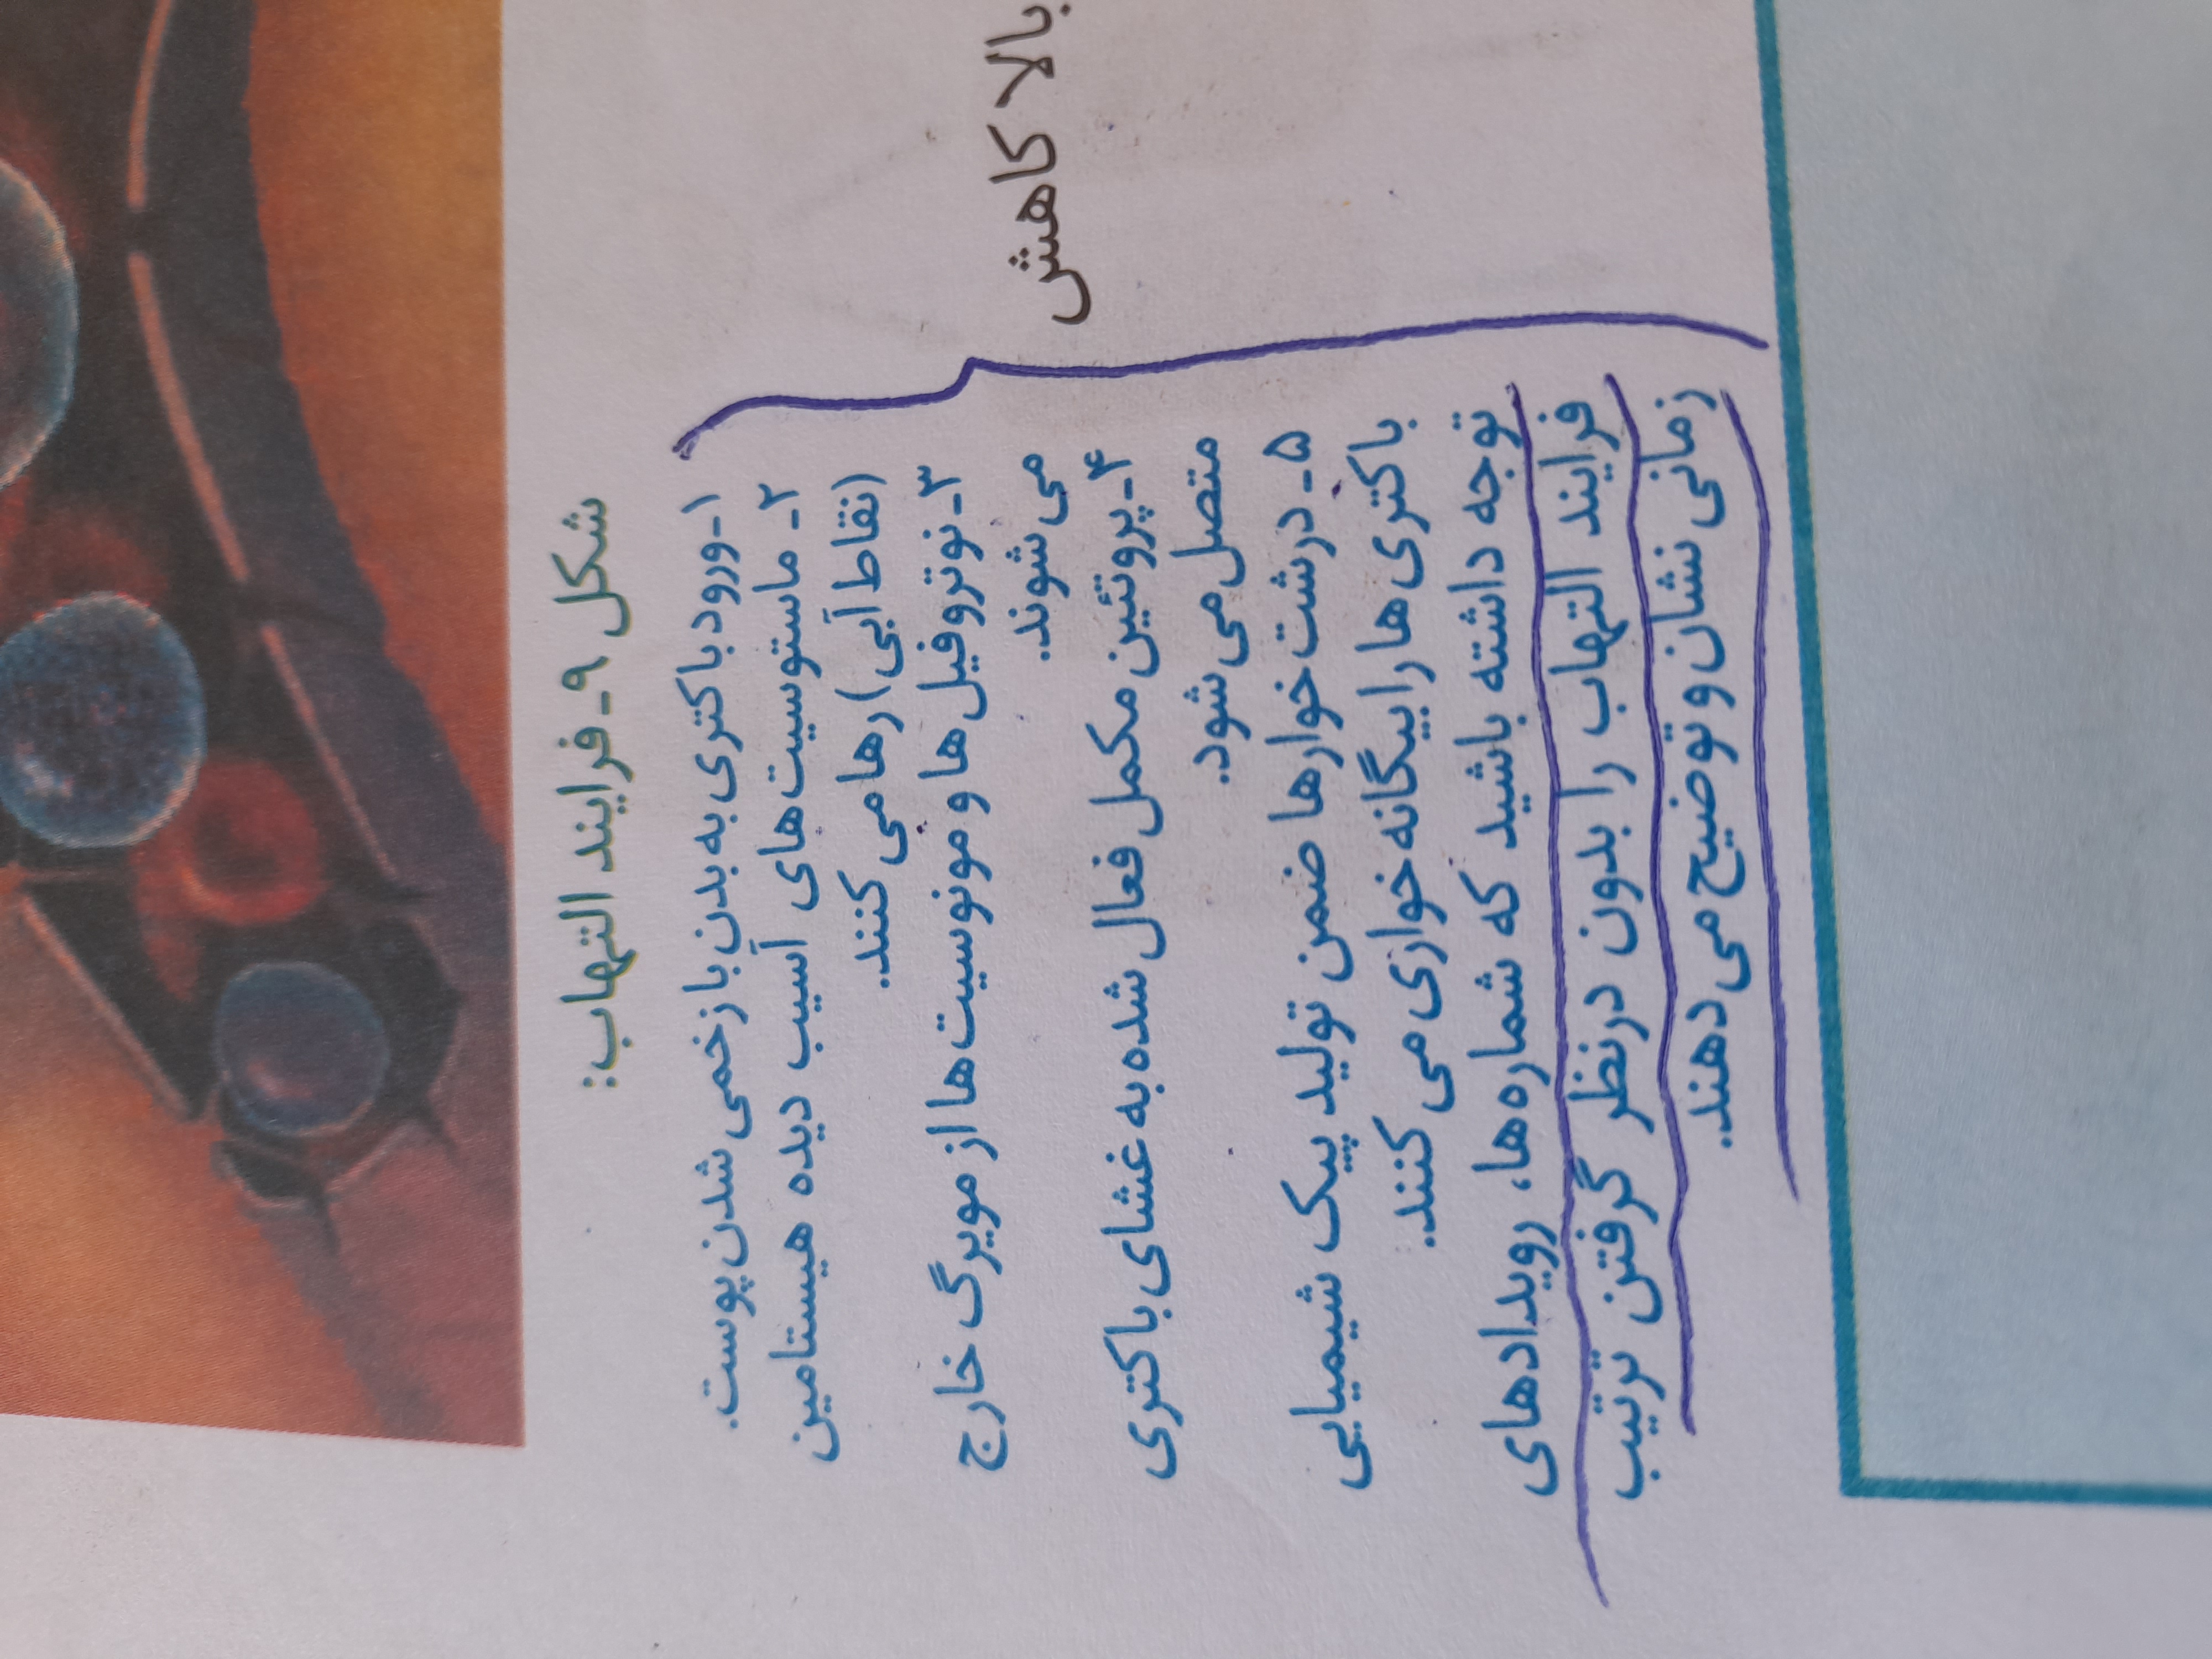 شکل ۹ـ فرایند التهاب:
۱ـ ورود باکتری به بدن با زخمی شدن پوست.
۲ـ ماستوسیت‌های آسیب دیده هیستامین
(نقاط آبی) رها می‌کنند.
۳ـ نوتروفیل‌ها و مونوسیت‌ها از مویرگ خارج
می‌شوند.
۴ـ پروتئین مکمل فعال شده به غشای باکتری
متصل می‌شود.
۵ـ درشت خوارها ضمن تولید پیک شیمیایی
باکتری‌ها را بیگانه‌خواری می‌کنند.
توجه داشته باشید که شماره‌ها، رویدادهای
فرایند التهاب را بدون درنظر گرفتن ترتیب
زمانی نشان و توضیح می‌دهند.
بالا کاهش